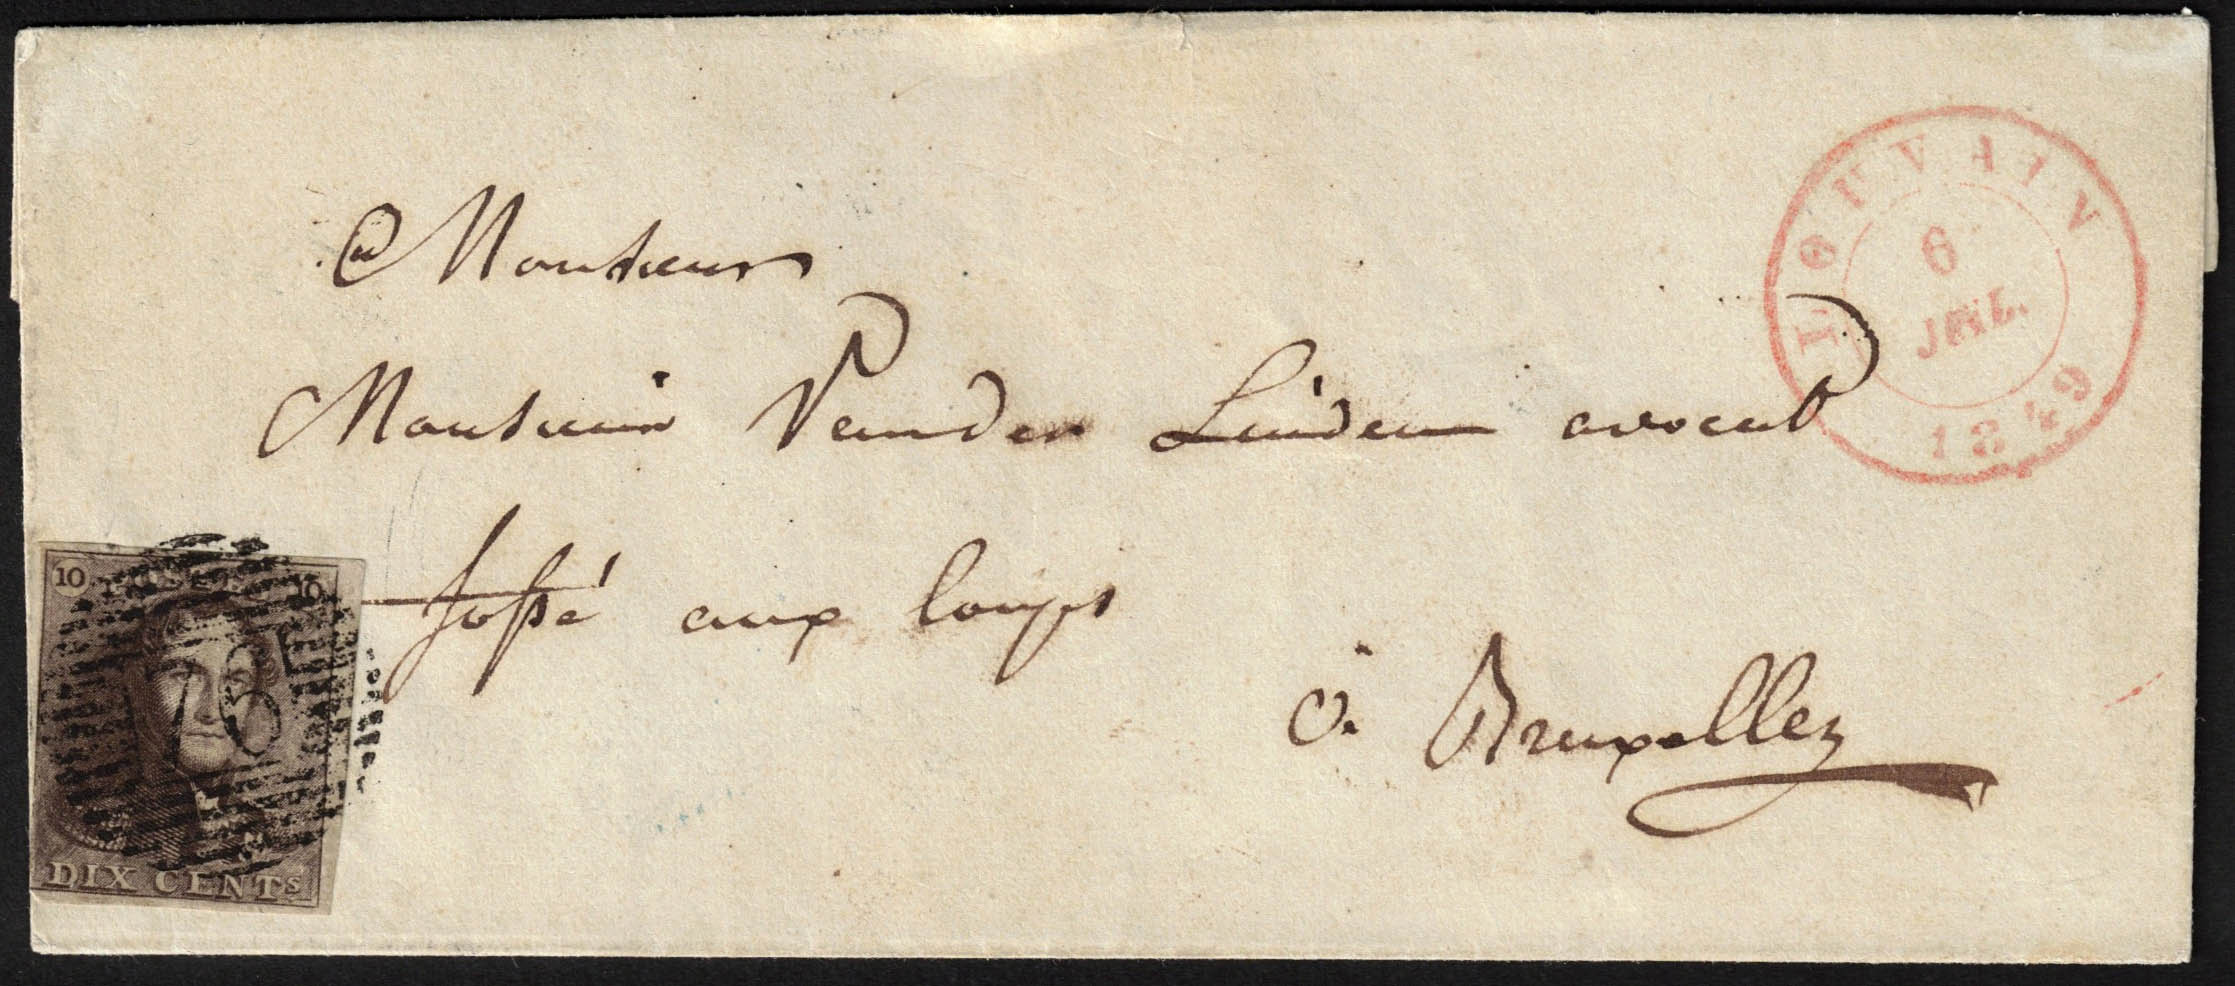 A Monsieur
Monsieur Vander Linden avocat
fossé aux loups
à Bruxelles
LOUVAIN
6
JUIL.
1849
10 POSTES 10
DIX CENTS